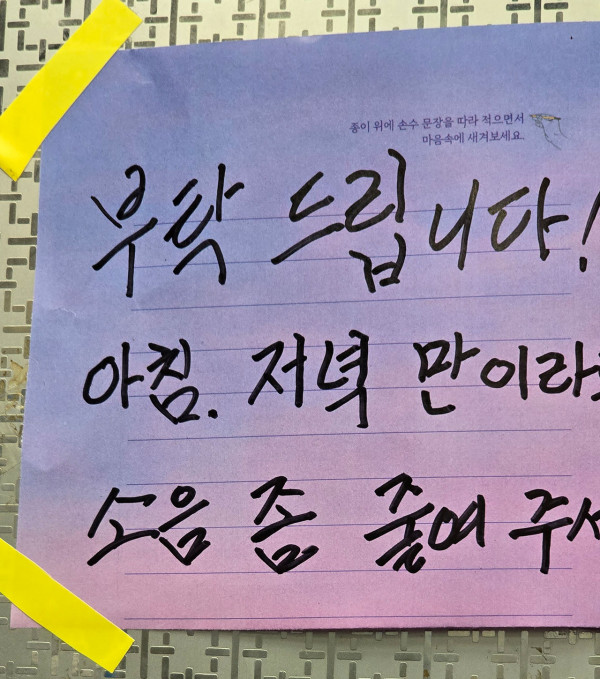 종이 위에 손수 문장을 따라 적으면서
마음속에 새겨보세요.
부탁 드립니다!
아침. 저녁 만이라
소음 좀 줄여 주